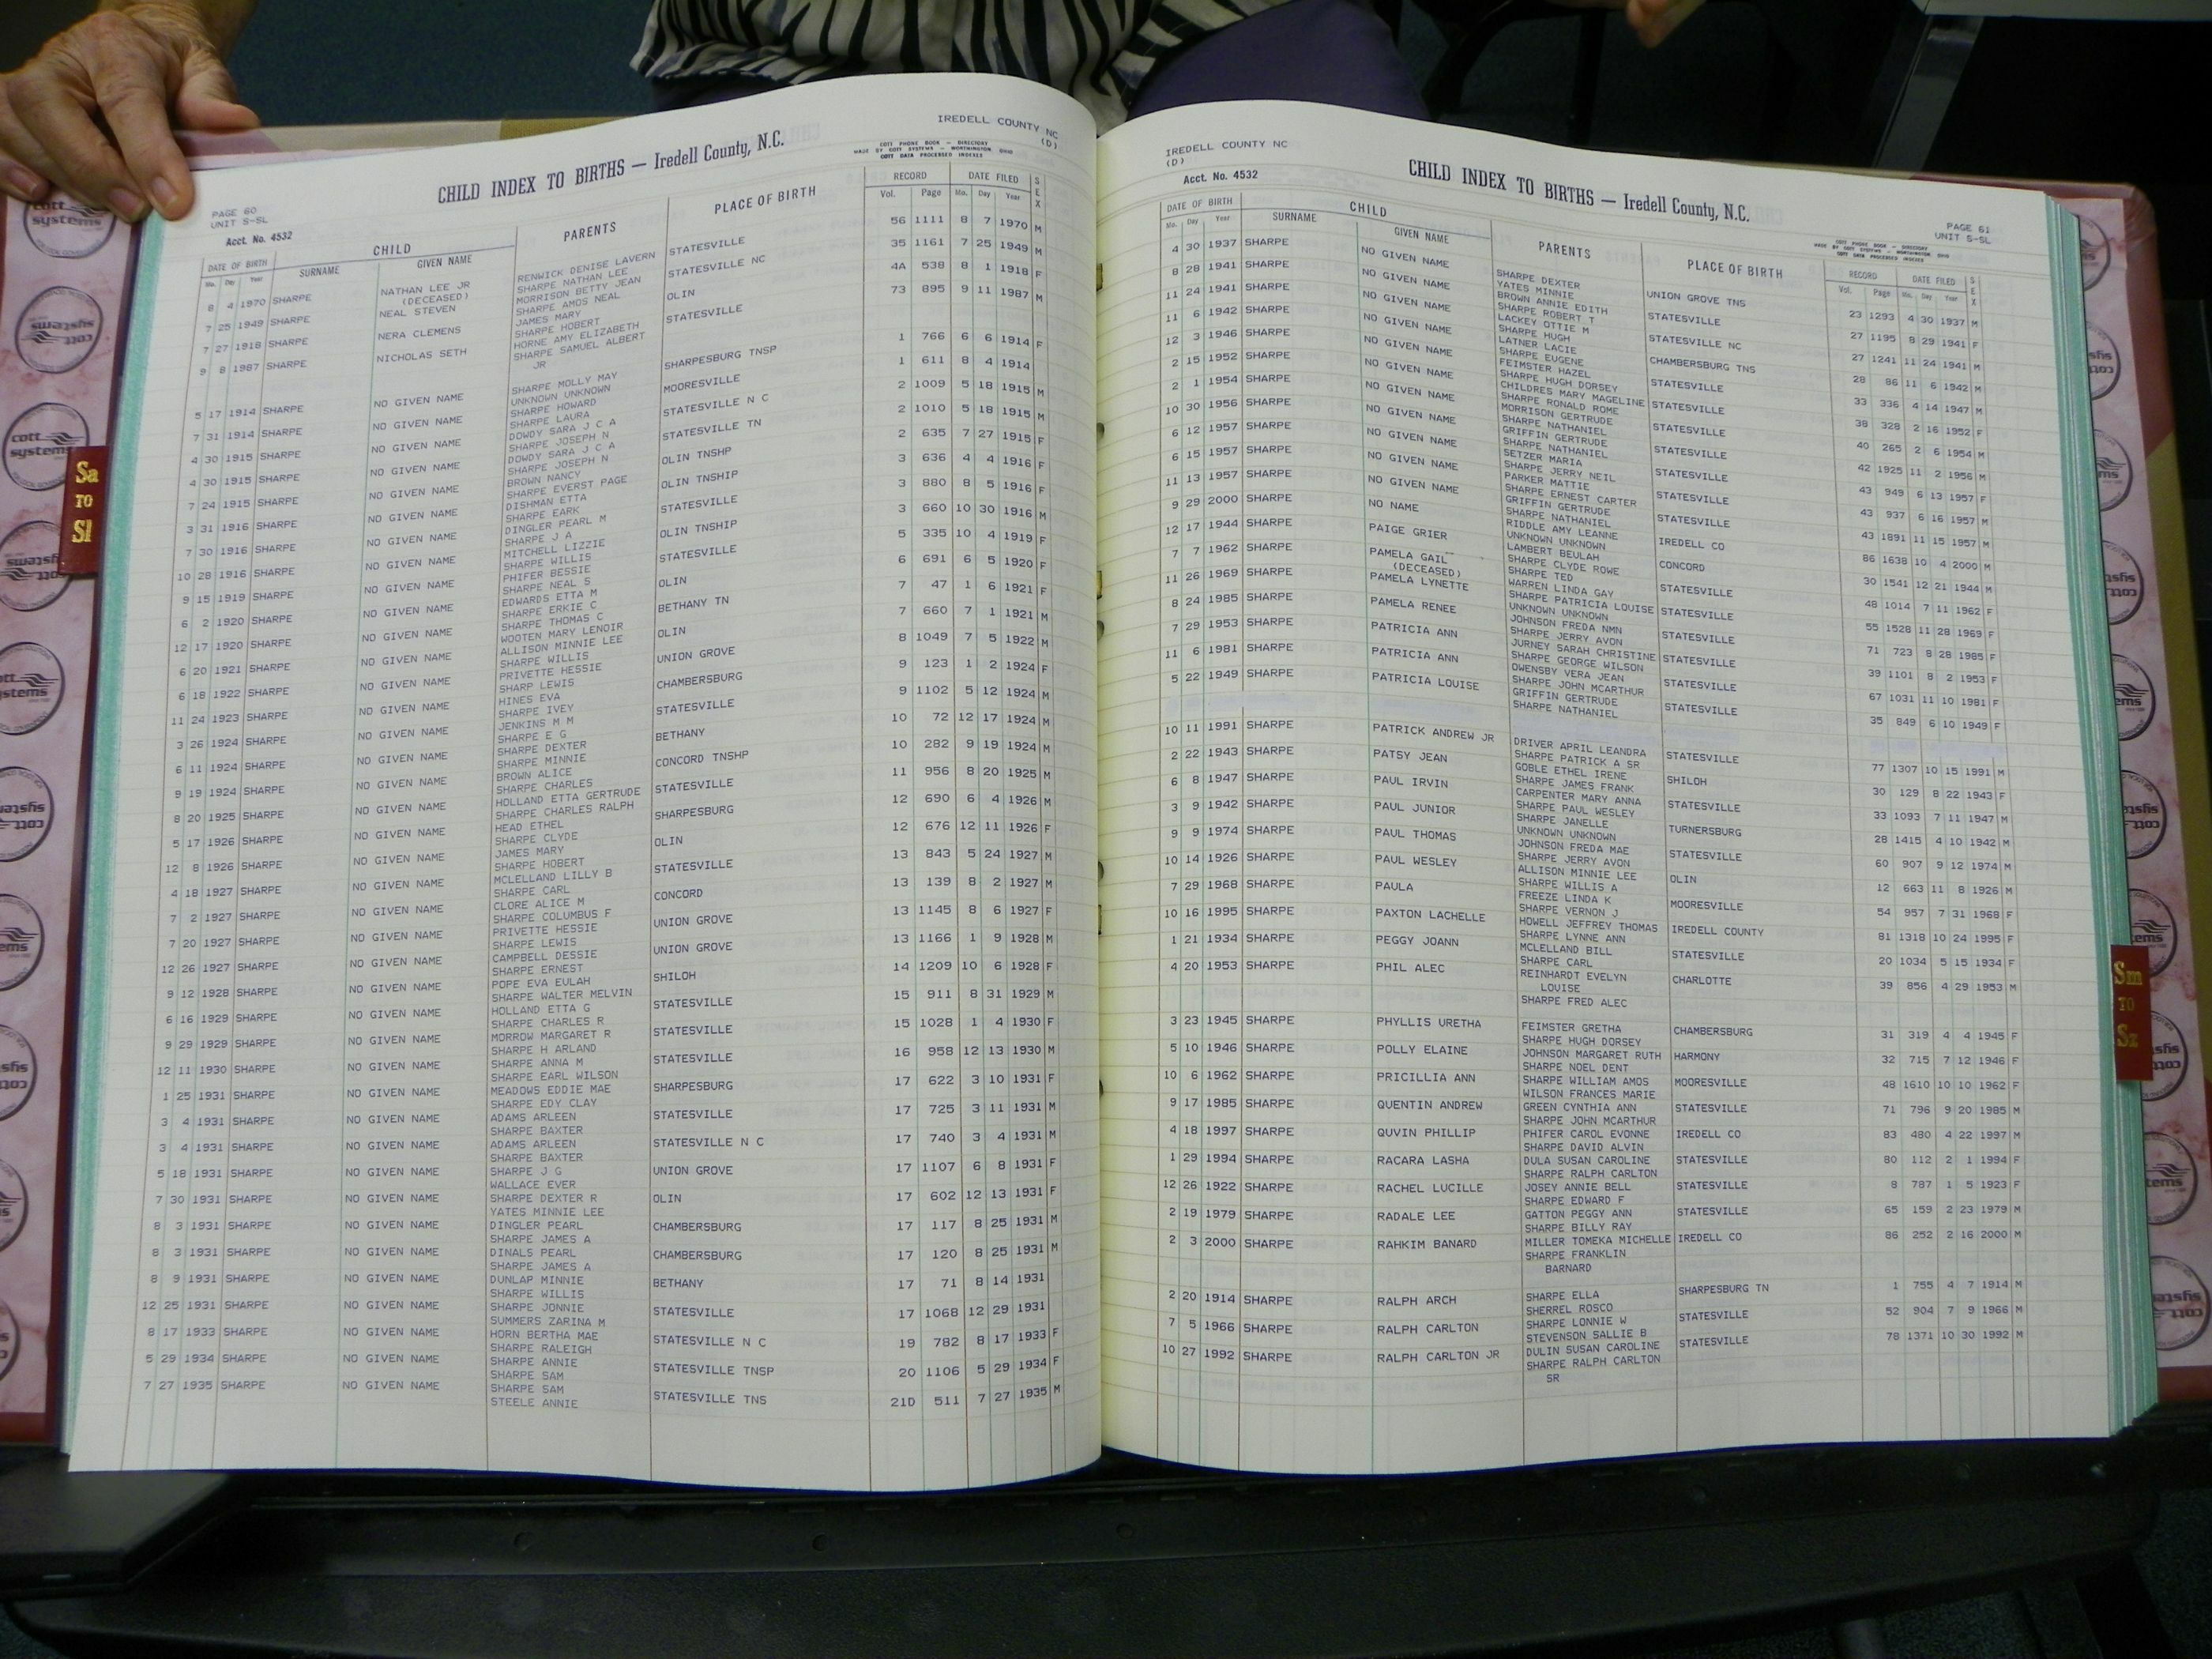 IREDELL COUNTY NC
(D)
CHILD INDEX TO BIRTHS — Iredell County, N.C.
COTT PHONE BOOK — DIRECTORY
MADE BY COTT SYSTEMS — WORTHINGTON, OHIO
COTT DATA PROCESSED INDEXES
PAGE 60
UNIT S-SL
Acct. No. 4532
DATE OF BIRTH CHILD PARENTS PLACE OF BIRTH RECORD DATE FILED SEX
Mo. Day Year SURNAME GIVEN NAME Vol. Page Mo. Day Year
8 4 1970 SHARPE NATHAN LEE JR RENWICK DENISE LAVERN STATESVILLE 56 1111 8 7 1970 M
(DECEASED) SHARPE NATHAN LEE
7 25 1949 SHARPE NEAL STEVEN MORRISON BETTY JEAN STATESVILLE NC 35 1161 7 25 1949 M
SHARPE AMOS NEAL
7 27 1918 SHARPE NERA CLEMENS JAMES MARY OLIN 4A 538 8 1 1918 F
SHARPE HOBERT
9 8 1987 SHARPE NICHOLAS SETH HORNE AMY ELIZABETH STATESVILLE 73 895 9 11 1987 M
SHARPE SAMUEL ALBERT
JR
5 17 1914 SHARPE NO GIVEN NAME SHARPE MOLLY MAY SHARPESBURG TNSP 1 766 6 6 1914 F
UNKNOWN UNKNOWN
7 31 1914 SHARPE NO GIVEN NAME SHARPE HOWARD MOORESVILLE 1 611 8 4 1914
SHARPE LAURA
4 30 1915 SHARPE NO GIVEN NAME DOWDY SARA J C A STATESVILLE N C 2 1009 5 18 1915 M
SHARPE JOSEPH N
4 30 1915 SHARPE NO GIVEN NAME DOWDY SARA J C A STATESVILLE TN 2 1010 5 18 1915 M
SHARPE JOSEPH N
7 24 1915 SHARPE NO GIVEN NAME BROWN NANCY OLIN TNSHP 2 635 7 27 1915 F
SHARPE EVERST PAGE
3 31 1916 SHARPE NO GIVEN NAME DISHMAN ETTA OLIN TNSHIP 3 636 4 4 1916 F
SHARPE EARK
7 30 1916 SHARPE NO GIVEN NAME DINGLER PEARL M STATESVILLE 3 880 8 5 1916 F
SHARPE J A
10 28 1916 SHARPE NO GIVEN NAME MITCHELL LIZZIE OLIN TNSHIP 3 660 10 30 1916 M
SHARPE WILLIS
9 15 1919 SHARPE NO GIVEN NAME PHIFER BESSIE STATESVILLE 5 335 10 4 1919 F
SHARPE NEAL S
6 2 1920 SHARPE NO GIVEN NAME EDWARDS ETTA M OLIN 6 691 6 5 1920 F
SHARPE ERKIE C
12 17 1920 SHARPE NO GIVEN NAME SHARPE THOMAS C BETHANY TN 7 47 1 6 1921 F
WOOTEN MARY LENOIR
6 20 1921 SHARPE NO GIVEN NAME ALLISON MINNIE LEE OLIN 7 660 7 1 1921 M
SHARPE WILLIS
6 18 1922 SHARPE NO GIVEN NAME PRIVETTE HESSIE UNION GROVE 8 1049 7 5 1922 M
SHARP LEWIS
11 24 1923 SHARPE NO GIVEN NAME HINES EVA CHAMBERSBURG 9 123 1 2 1924 F
SHARPE IVEY
3 26 1924 SHARPE NO GIVEN NAME JENKINS M M STATESVILLE 9 1102 5 12 1924 M
SHARPE E G
6 11 1924 SHARPE NO GIVEN NAME SHARPE DEXTER BETHANY 10 72 12 17 1924 M
SHARPE MINNIE
9 19 1924 SHARPE NO GIVEN NAME BROWN ALICE CONCORD TNSHP 10 282 9 19 1924 M
SHARPE CHARLES
8 20 1925 SHARPE NO GIVEN NAME HOLLAND ETTA GERTRUDE STATESVILLE 11 956 8 20 1925 M
SHARPE CHARLES RALPH
5 17 1926 SHARPE NO GIVEN NAME HEAD ETHEL SHARPESBURG 12 690 6 4 1926 M
SHARPE CLYDE
12 8 1926 SHARPE NO GIVEN NAME JAMES MARY OLIN 12 676 12 11 1926 F
SHARPE HOBERT
4 18 1927 SHARPE NO GIVEN NAME MCLELLAND LILLY B STATESVILLE 13 843 5 24 1927 M
SHARPE CARL
7 2 1927 SHARPE NO GIVEN NAME CLORE ALICE M CONCORD 13 139 8 2 1927 M
SHARPE COLUMBUS F
7 20 1927 SHARPE NO GIVEN NAME PRIVETTE HESSIE UNION GROVE 13 1145 8 6 1927 F
SHARPE LEWIS
12 26 1927 SHARPE NO GIVEN NAME CAMPBELL DESSIE UNION GROVE 13 1166 1 9 1928 M
SHARPE ERNEST
9 12 1928 SHARPE NO GIVEN NAME POPE EVA EULAH SHILOH 14 1209 10 6 1928 F
SHARPE WALTER MELVIN
6 16 1929 SHARPE NO GIVEN NAME HOLLAND ETTA G STATESVILLE 15 911 8 31 1929 M
SHARPE CHARLES R
9 29 1929 SHARPE NO GIVEN NAME MORROW MARGARET R STATESVILLE 15 1028 1 4 1930 F
SHARPE H ARLAND
12 11 1930 SHARPE NO GIVEN NAME SHARPE ANNA M STATESVILLE 16 958 12 13 1930 M
SHARPE EARL WILSON
1 25 1931 SHARPE NO GIVEN NAME MEADOWS EDDIE MAE SHARPESBURG 17 622 3 10 1931 F
SHARPE EDY CLAY
3 4 1931 SHARPE NO GIVEN NAME ADAMS ARLEEN STATESVILLE 17 725 3 11 1931 M
SHARPE BAXTER
3 4 1931 SHARPE NO GIVEN NAME ADAMS ARLEEN STATESVILLE N C 17 740 3 4 1931 M
SHARPE BAXTER
5 18 1931 SHARPE NO GIVEN NAME SHARPE J G UNION GROVE 17 1107 6 8 1931 F
WALLACE EVER
7 30 1931 SHARPE NO GIVEN NAME SHARPE DEXTER R OLIN 17 602 12 13 1931 F
YATES MINNIE LEE
8 3 1931 SHARPE NO GIVEN NAME DINGLER PEARL CHAMBERSBURG 17 117 8 25 1931 M
SHARPE JAMES A
8 3 1931 SHARPE NO GIVEN NAME DINALS PEARL CHAMBERSBURG 17 120 8 25 1931 M
SHARPE JAMES A
8 9 1931 SHARPE NO GIVEN NAME DUNLAP MINNIE BETHANY 17 71 8 14 1931
SHARPE WILLIS
12 25 1931 SHARPE NO GIVEN NAME SHARPE JONNIE STATESVILLE 17 1068 12 29 1931
SUMMERS ZARINA M
8 17 1933 SHARPE NO GIVEN NAME HORN BERTHA MAE STATESVILLE N C 19 782 8 17 1933 F
SHARPE RALEIGH
5 29 1934 SHARPE NO GIVEN NAME SHARPE ANNIE STATESVILLE TNSP 20 1106 5 29 1934 F
SHARPE SAM
7 27 1935 SHARPE NO GIVEN NAME SHARPE SAM STATESVILLE TNS 21D 511 7 27 1935 M
STEELE ANNIE
IREDELL COUNTY NC
(D)
Acct. No. 4532
CHILD INDEX TO BIRTHS — Iredell County, N.C.
PAGE 61
UNIT S-SL
COTT PHONE BOOK — DIRECTORY
MADE BY COTT SYSTEMS — WORTHINGTON, OHIO
COTT DATA PROCESSED INDEXES
DATE OF BIRTH CHILD PARENTS PLACE OF BIRTH RECORD DATE FILED SEX
Mo. Day Year SURNAME GIVEN NAME Vol. Page Mo. Day Year
4 30 1937 SHARPE NO GIVEN NAME SHARPE DEXTER UNION GROVE TNS 23 1293 4 30 1937 M
YATES MINNIE
8 28 1941 SHARPE NO GIVEN NAME BROWN ANNIE EDITH STATESVILLE 27 1195 8 29 1941 F
SHARPE ROBERT T
11 24 1941 SHARPE NO GIVEN NAME LACKEY OTTIE M STATESVILLE NC 27 1241 11 24 1941 M
SHARPE HUGH
11 6 1942 SHARPE NO GIVEN NAME LATNER LACIE CHAMBERSBURG TNS 28 86 11 6 1942 M
SHARPE EUGENE
12 3 1946 SHARPE NO GIVEN NAME FEIMSTER HAZEL STATESVILLE 33 336 4 14 1947 M
SHARPE HUGH DORSEY
2 15 1952 SHARPE NO GIVEN NAME CHILDRES MARY MAGELINE STATESVILLE 38 328 2 16 1952 F
SHARPE RONALD ROME
2 1 1954 SHARPE NO GIVEN NAME MORRISON GERTRUDE STATESVILLE 40 265 2 6 1954 M
SHARPE NATHANIEL
10 30 1956 SHARPE NO GIVEN NAME GRIFFIN GERTRUDE STATESVILLE 42 1925 11 2 1956 M
SHARPE NATHANIEL
6 12 1957 SHARPE NO GIVEN NAME SETZER MARIA STATESVILLE 43 949 6 13 1957 F
SHARPE JERRY NEIL
6 15 1957 SHARPE NO GIVEN NAME PARKER MATTIE STATESVILLE 43 937 6 16 1957 M
SHARPE ERNEST CARTER
11 13 1957 SHARPE NO GIVEN NAME GRIFFIN GERTRUDE IREDELL CO 43 1891 11 15 1957 M
SHARPE NATHANIEL
9 29 2000 SHARPE NO NAME RIDDLE AMY LEANNE CONCORD 86 1638 10 4 2000 M
UNKNOWN UNKNOWN
12 17 1944 SHARPE PAIGE GRIER LAMBERT BEULAH STATESVILLE 30 1541 12 21 1944 M
SHARPE CLYDE ROWE
7 7 1962 SHARPE PAMELA GAIL SHARPE TED STATESVILLE 48 1014 7 11 1962 F
(DECEASED) WARREN LINDA GAY
11 26 1969 SHARPE PAMELA LYNETTE SHARPE PATRICIA LOUISE STATESVILLE 55 1528 11 28 1969 F
UNKNOWN UNKNOWN
8 24 1985 SHARPE PAMELA RENEE JOHNSON FREDA NMN STATESVILLE 71 723 8 28 1985 F
SHARPE JERRY AVON
7 29 1953 SHARPE PATRICIA ANN JURNEY SARAH CHRISTINE STATESVILLE 39 1101 8 2 1953 F
SHARPE GEORGE WILSON
11 6 1981 SHARPE PATRICIA ANN OWENSBY VERA JEAN STATESVILLE 67 1031 11 10 1981 F
SHARPE JOHN MCARTHUR
5 22 1949 SHARPE PATRICIA LOUISE GRIFFIN GERTRUDE STATESVILLE 35 849 6 10 1949 F
SHARPE NATHANIEL
10 11 1991 SHARPE PATRICK ANDREW JR DRIVER APRIL LEANDRA STATESVILLE 77 1307 10 15 1991 M
SHARPE PATRICK A SR
2 22 1943 SHARPE PATSY JEAN GOBLE ETHEL IRENE SHILOH 30 129 8 22 1943 F
SHARPE JAMES FRANK
6 8 1947 SHARPE PAUL IRVIN CARPENTER MARY ANNA STATESVILLE 33 1093 7 11 1947 M
SHARPE PAUL WESLEY
3 9 1942 SHARPE PAUL JUNIOR SHARPE JANELLE TURNERSBURG 28 1415 4 10 1942 M
UNKNOWN UNKNOWN
9 9 1974 SHARPE PAUL THOMAS JOHNSON FREDA MAE STATESVILLE 60 907 9 12 1974 M
SHARPE JERRY AVON
10 14 1926 SHARPE PAUL WESLEY ALLISON MINNIE LEE OLIN 12 663 11 8 1926 M
SHARPE WILLIS A
7 29 1968 SHARPE PAULA FREEZE LINDA K MOORESVILLE 54 957 7 31 1968 F
SHARPE VERNON J
10 16 1995 SHARPE PAXTON LACHELLE HOWELL JEFFREY THOMAS IREDELL COUNTY 81 1318 10 24 1995 F
SHARPE LYNNE ANN
1 21 1934 SHARPE PEGGY JOANN MCLELLAND BILL STATESVILLE 20 1034 5 15 1934 F
SHARPE CARL
4 20 1953 SHARPE PHIL ALEC REINHARDT EVELYN CHARLOTTE 39 856 4 29 1953 M
LOUISE
SHARPE FRED ALEC
3 23 1945 SHARPE PHYLLIS URETHA FEIMSTER GRETHA CHAMBERSBURG 31 319 4 4 1945 F
SHARPE HUGH DORSEY
5 10 1946 SHARPE POLLY ELAINE JOHNSON MARGARET RUTH HARMONY 32 715 7 12 1946 F
SHARPE NOEL DENT
10 6 1962 SHARPE PRICILLIA ANN SHARPE WILLIAM AMOS MOORESVILLE 48 1610 10 10 1962 F
WILSON FRANCES MARIE
9 17 1985 SHARPE QUENTIN ANDREW GREEN CYNTHIA ANN STATESVILLE 71 796 9 20 1985 M
SHARPE JOHN MCARTHUR
4 18 1997 SHARPE QUVIN PHILLIP PHIFER CAROL EVONNE IREDELL CO 83 480 4 22 1997 M
SHARPE DAVID ALVIN
1 29 1994 SHARPE RACARA LASHA DULA SUSAN CAROLINE STATESVILLE 80 112 2 1 1994 F
SHARPE RALPH CARLTON
12 26 1922 SHARPE RACHEL LUCILLE JOSEY ANNIE BELL STATESVILLE 8 787 1 5 1923 F
SHARPE EDWARD F
2 19 1979 SHARPE RADALE LEE GATTON PEGGY ANN STATESVILLE 65 159 2 23 1979 M
SHARPE BILLY RAY
2 3 2000 SHARPE RAHKIM BANARD MILLER TOMEKA MICHELLE IREDELL CO 86 252 2 16 2000 M
SHARPE FRANKLIN
BARNARD
2 20 1914 SHARPE RALPH ARCH SHARPE ELLA SHARPESBURG TN 1 755 4 7 1914 M
SHERREL ROSCO
7 5 1966 SHARPE RALPH CARLTON SHARPE LONNIE W STATESVILLE 52 904 7 9 1966 M
STEVENSON SALLIE B
10 27 1992 SHARPE RALPH CARLTON JR DULIN SUSAN CAROLINE STATESVILLE 78 1371 10 30 1992 M
SHARPE RALPH CARLTON
SR
Sa
TO
Sl
Sm
TO
Sz
cott
systems